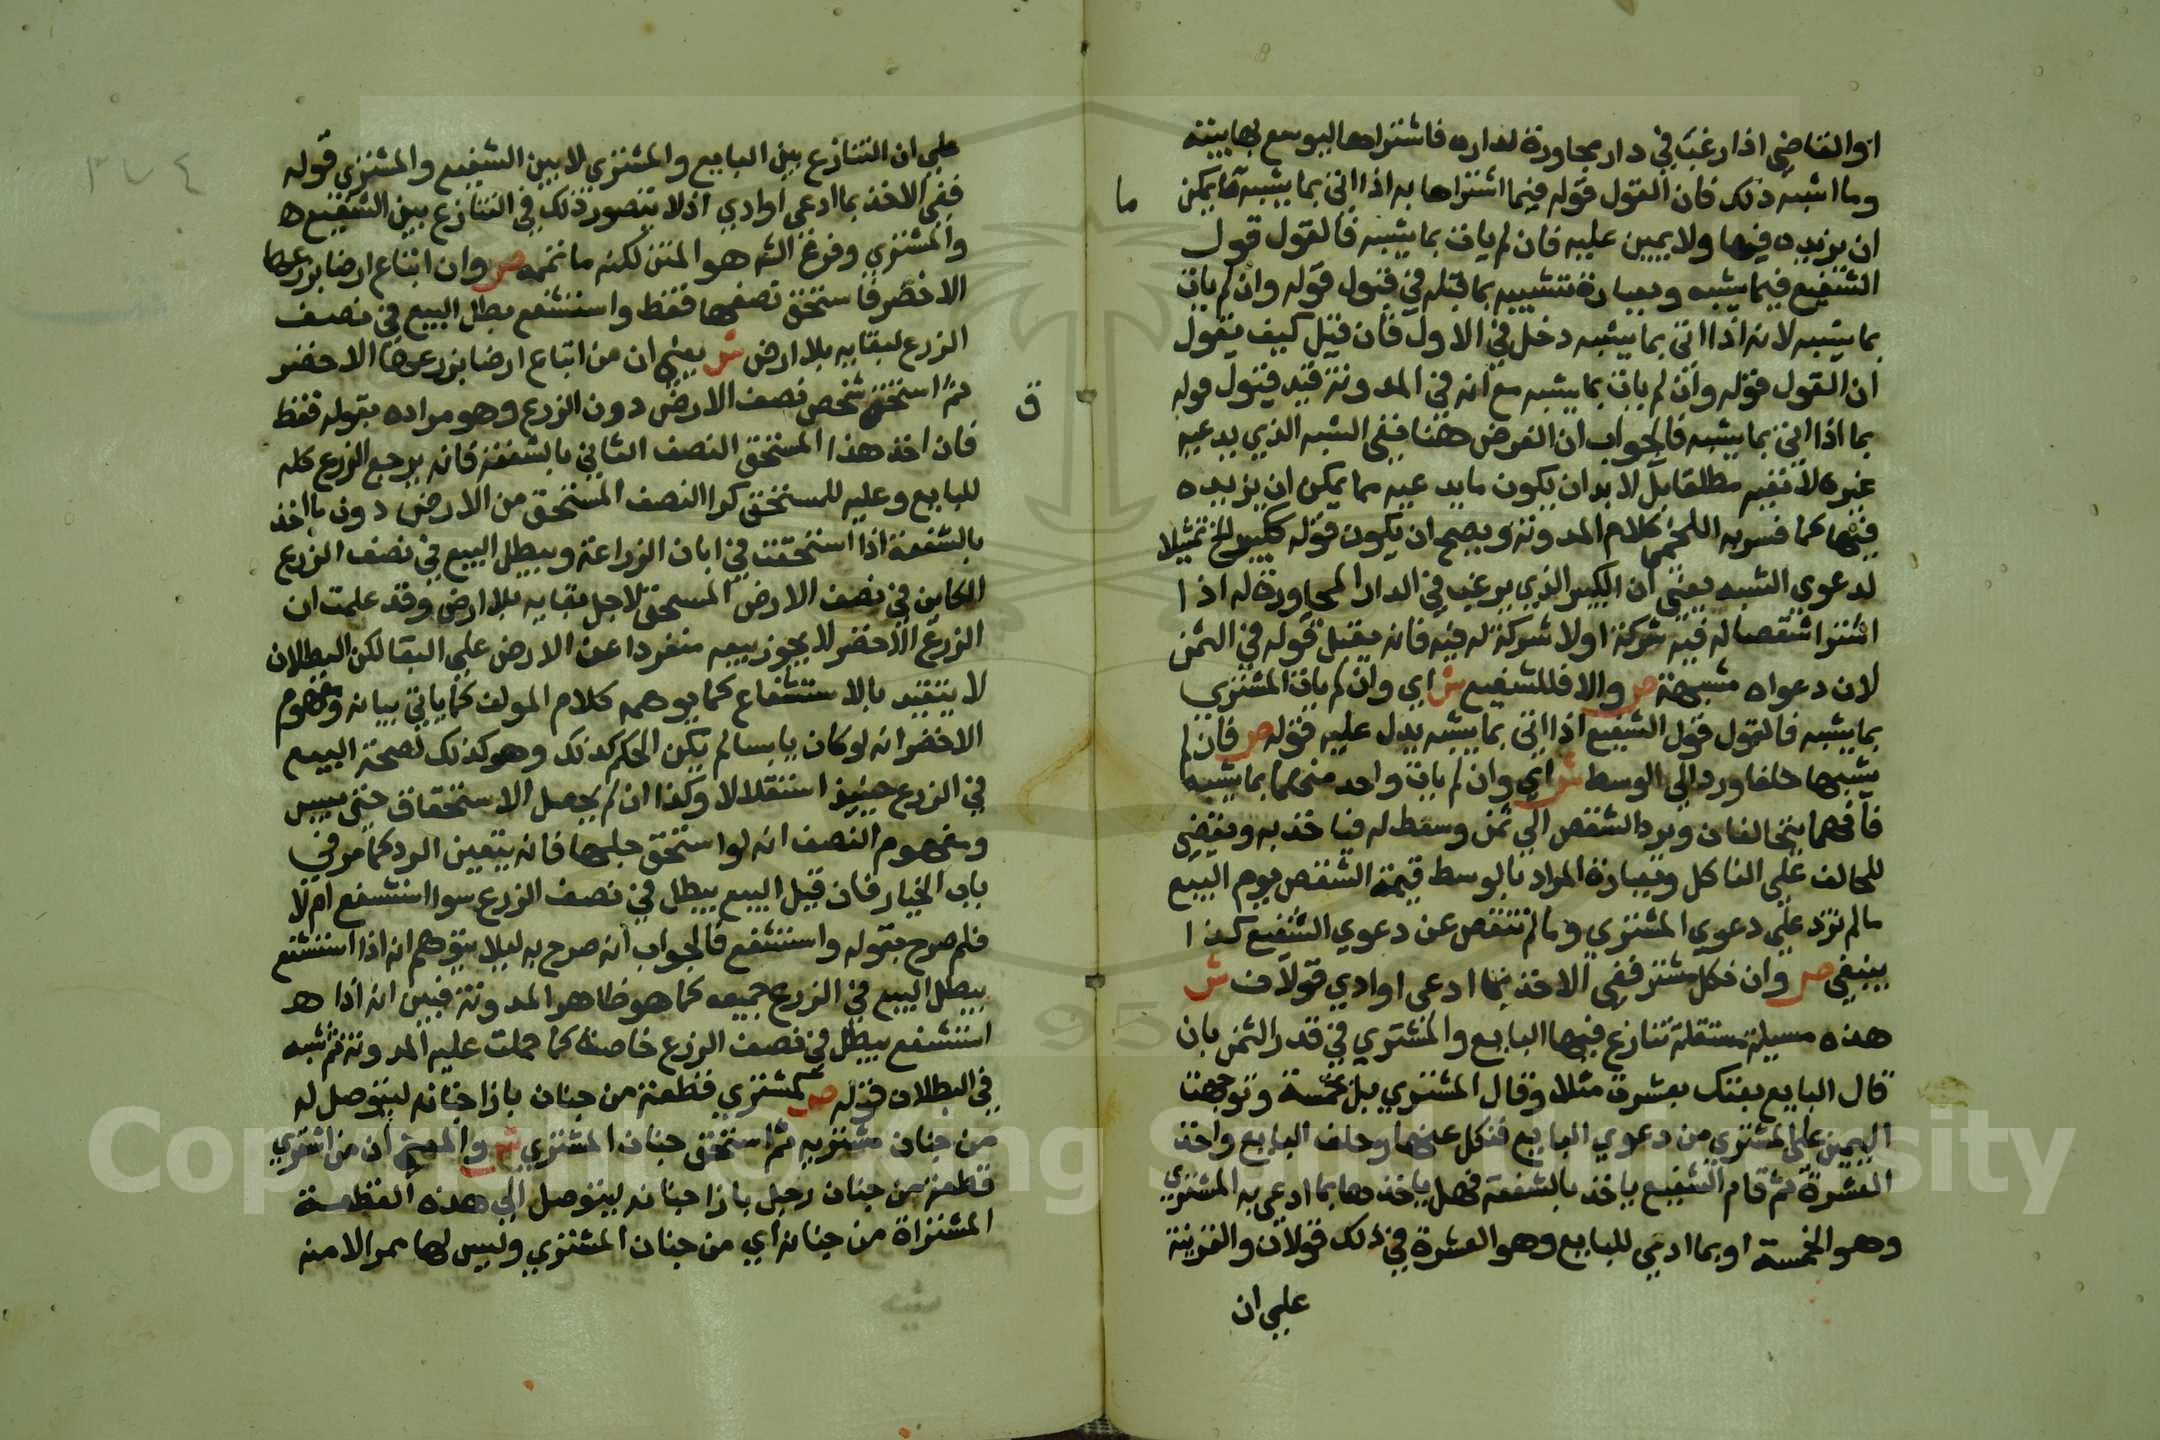 او القاضي اذا رغب في دار مجاورة لداره فاشتراها ليوسع بها بيته
وما اشبه ذلك فان القول قوله فيما اشتراها به اذا اتى بما يشبه مما يمكن
ما
ان يزيده فيها ولا يمين عليه فان لم يات بما يشبه فالقول قول
الشفيع فيما يشبه وبعبارة تشبيه بما قبله في قبول قوله وان لم يات
بما يشبه لانه اذا اتى بما يشبه دخل في الاول فان قيل كيف يقول
ان القول قوله وان لم يات بما يشبه مع انه في المدونة قيد قبول قوله
بما اذا اتى بما يشبه فالجواب ان الغرض هنا نفي الشبه الذي يدعيه
غيره لا نفيه مطلقا بل لا بد ان يكون ما يدعيه مما يمكن ان يزيده
فيها كما فسر به اللخمي كلام المدونة ويصح ان يكون قوله ككبير الخ تمثيلا
لدعوي الشبه يعني ان الكبير الذي يرغب في الدار المجاورة له اذا
اشترا شقصا له فيه شركة او لا شركة له فيه فانه يقبل قوله في الثمن
لان دعواه مشبهة ص والا فللشفيع ش اي وان لم يات المشتري
بما يشبه فالقول قول الشفيع اذا اتى بما يشبه يدل عليه قوله ص فان لم
يشبها حلفا ورد الي الوسط ش اي وان لم يات واحد منهما بما يشبه
فانهما يتحالفان ويرد الشقص الي ثمن وسط له فياخذ به ويقضي
للحالف علي الناكل وبعبارة المراد بالوسط قيمة الشقص يوم البيع
ما لم تزد علي دعوي المشتري وما لم تنقص عن دعوي الشفيع كذا
ينبغي ص وان نكل مشتر ففي الاخذ بما ادعى او ادي قولان ش
هذه مسيلة مستقلة تنازع فيها البايع والمشتري في قدر الثمن بان
قال البايع بعتك بعشرة مثلا وقال المشتري بل بخمسة وتوجهت
اليمين علي المشتري من دعوي البايع فنكل عنها وحلف البايع واخذ
العشرة ثم قام الشفيع ياخذ بالشفعة فهل ياخذها بما ادعي به المشتري
وهو الخمسة او بما ادي للبايع وهو العشرة في ذلك قولان والقرينة
علي ان
٣٧٤
علي ان التنازع بين البايع والمشتري لا بين الشفيع والمشتري قوله
ففي الاخذ بما ادعى او ادي اذ لا يتصور ذلك في التنازع بين الشفيع
والمشتري وفرغ الشه هو المتن لكنه ما تممه ص وان ابتاع ارضا بزرعها
الاخضر فاستحق نصفها فقط واستشفع بطل البيع في نصف
الزرع لبقايه بلا ارض ش يعني ان من ابتاع ارضا بزرعها الاخضر
ثم استحق شخص نصف الارض دون الزرع وهو مراده بقوله فقط
ق
فان اخذ هذا المستحق النصف الثاني بالشفعة فانه يرجع الزرع كله
للبايع وعليه للمستحق كرا النصف المستحق من الارض دون ما اخذ
بالشفعة اذا استحقت في ابان الزراعة ويبطل البيع في نصف الزرع
الكاين في نصف الارض المستحق لاجل بقايه بلا ارض وقد علمت ان
الزرع الاخضر لا يجوز بيعه منفردا عن الارض علي البقا لكن البطلان
لا يتقيد بالاستشفاع كما يوهمه كلام المولف كما ياتي بيانه ومفهوم
الاخضر انه لو كان يابسا لم يكن الحكم كذلك وهو كذلك لصحة البيع
في الزرع حينيذ استقلالا وكذا ان لم يحصل الاستحقاق حتى يبس
ومفهوم النصف انه لو استحق جلها فانه يتعين الرد كما مر في
باب الخيار فان قيل البيع يبطل في نصف الزرع سوا استشفع ام لا
فلم صرح بقوله واستشفع فالجواب انه صرح به ليلا يتوهم انه اذا استشفع
يبطل البيع في الزرع جميعه كما هو ظاهر المدونة فبين انه اذا
استشفع يبطل في نصف الزرع خاصة كما حملت عليه المدونة ثم شبه
في البطلان قوله ص كمشتري قطعة من جنان بازا جنانه ليتوصل له
من جنان مشتريه ثم استحق جنان المشتري ش والمعنى ان من اشتري
قطعة من جنان رجل بازا جنانه ليتوصل الي هذه القطعة
المشتراة من جنانه اي من جنان المشتري وليس لها ممر الا منه
Copyright © King Saud University